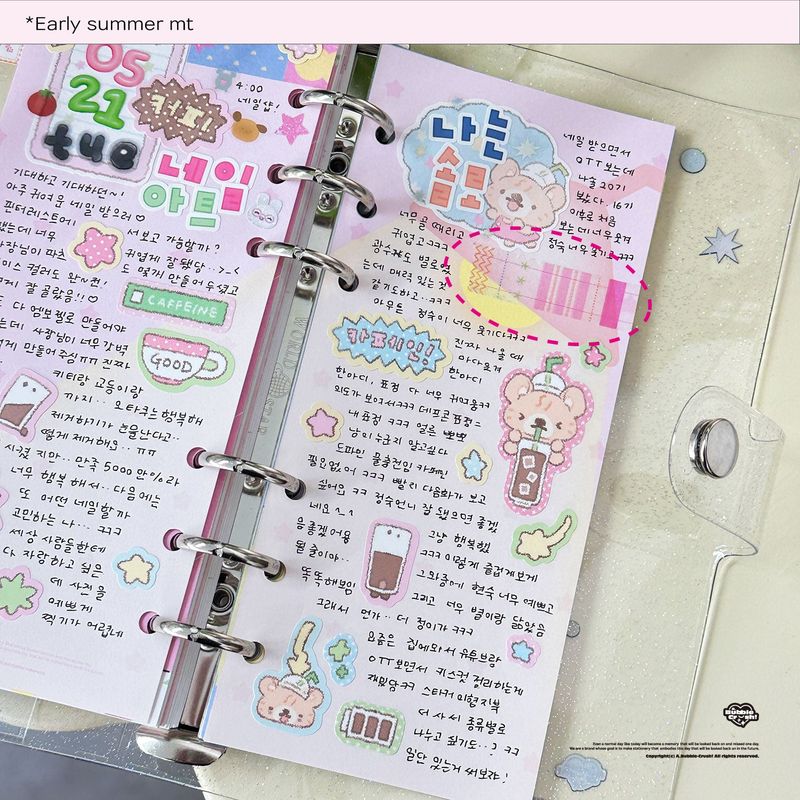 *Early summer mt
05
21
tue
커피
4:00
네일샵!
네일
아트
기대하고 기대하던~!
아주 귀여운 네일 받으러♡
핀터레스트에서 보고 가능할까?
했는데 너무 귀엽게 잘 됐당 ..>_<
사장님이 파츠도 몇개 만들어 두셨고
이스 컬러도 완~전!
게 잘 골랐음!!♡
CAFFEINE
다 엠보젤로 만들어야
는데 사장님이 너무 감벽
게 만들어주심ㅠㅠ 진짜
GOOD
키티랑 고등이랑
까지... 오타쿠는 행복해
제거하기가 눈물난다고..
어떻게 제거해요.. ㅠㅠ
시겼지만.. 만족 5000만%라
너무 행복해서.. 다음에는
또 어떤 네일할까
고민하는 나... ㅋㅋㅋ
세상 사람들한테
다 자랑하고 싶은
데 사진을
예쁘게
찍기가 어렵네
나는
솔로
네일 받으면서
OTT 보는데
나솔 20기
봤다. 16기
이후로 처음
보는데 너무 웃겨
정숙 너무 웃기고 ㅋㅋ
너무 골 때리고
귀엽고 ㅋㅋㅋ
광수씨도 별로였
는데 매력 있는 것
같기도 하고.. ㅋㅋㅋ
아무튼 정숙이 너무 웃기다ㅋㅋㅋ
카페인!
진짜 나올 때
마다 호크
한마디
한마디, 표정 다 너무 귀여움ㅋㅋ
의도가 보여서ㅋㅋㅋ 데프콘 표정 =
내 표정 ㅋㅋㅋ 얼른 뽀뽀
남이 누군지 알고싶다
도파민 풀충전인 카페인
필요없어 ㅋㅋㅋ 빨리 다음화가 보고
싶어요 ㅋㅋ 정숙언니 잘 됐으면 좋겠
네요 ^^
음 좋겠어용
될 줄이야..
똑똑해봄
그냥 행복했
ㅋㅋㅋ 이렇게 즐겁게 보게
그 와중에 현숙 너무 예쁘고
그리고 너무 별이랑 닮았음
그래서 먼가.. 더 정이가 ㅋㅋㅋ
요즘은 집에와서 유튜브랑
OTT 보면서 키스컷 정리하는게
재밌담ㅋㅋ 스티커 미형 지부
더 사서 종류별로
나누고 싶기도..? ㅋㅋ
일단 있는거 써보자!
WORLD
STAR
Bubble
Crush!
Even a normal day like today will become a memory that will be looked back on and relaxed one day.
We are a brand whose goal is to make stationery that embodies this day that will be looked back on in the future.
Copyright(c) A.Bubble-Crush! All rights reserved.